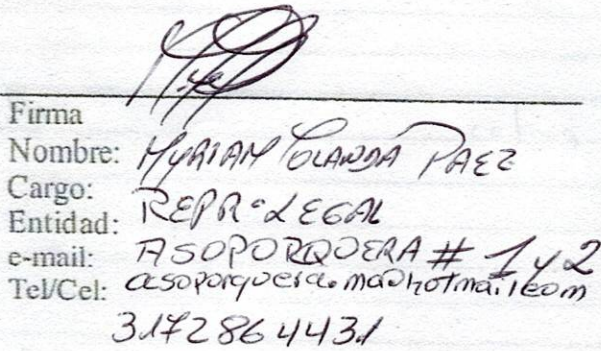 Firma
Nombre: MYRIAM YOLANDA PAEZ
Cargo: REPR. LEGAL
Entidad: ASOPORQUERA # 1 y 2
e-mail: asoporquera.ma@hotmail.com
Tel/Cel: 3172864431